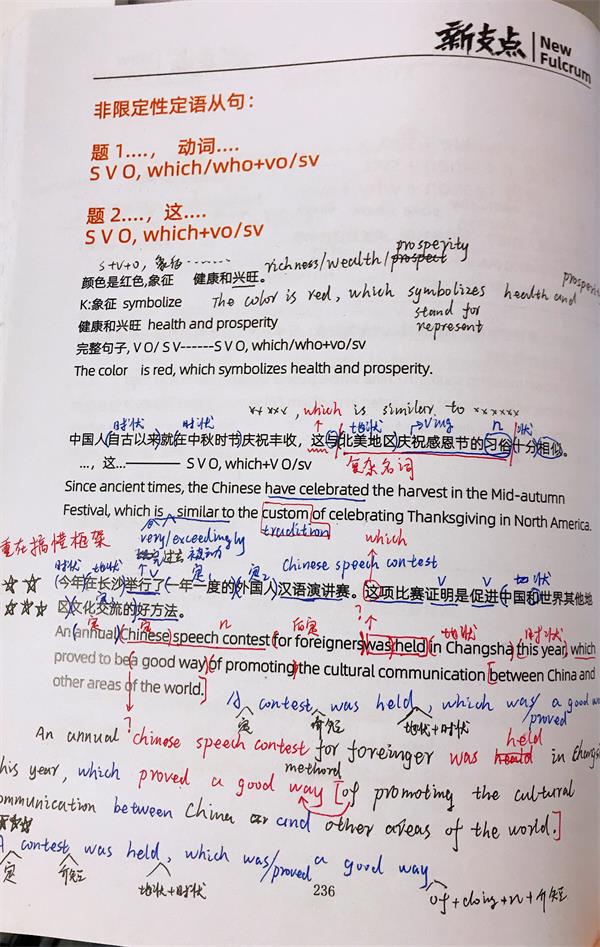 新支点 New Fulcrum
非限定性定语从句：
题 1....， 动词....
S V O, which/who+vo/sv
题 2....，这....
S V O, which+vo/sv
s+v+o, 象征........ richness/wealth/prospect prosperity
颜色是红色,象征 健康和兴旺。
K:象征 symbolize The color is red, which symbolizes health and prosperity
健康和兴旺 health and prosperity stand for
represent
完整句子, V O/ S V------S V O, which/who+vo/sv
The color is red, which symbolizes health and prosperity.
xxxxx, which is similar to xxxxxx
时状 时状 地状 ving n 状
中国人自古以来就在中秋时节庆祝丰收，这与北美地区庆祝感恩节的习俗十分相似。
...，这...———— S V O, which+V O/sv 复杂名词
Since ancient times, the Chinese have celebrated the harvest in the Mid-autumn
Festival, which is similar to the custom of celebrating Thanksgiving in North America.
重在搞懂框架 very/exceedingly tradition
过去 被动 which
时状 地状 V 定1 定2 Chinese speech contest V V 地状
今年在长沙举行了一年一度的外国人汉语演讲赛。这项比赛证明是促进中国和世界其他地
区文化交流的好方法。
定 定 n 后定 ? 地状 时状
An annual Chinese speech contest for foreigners was held in Changsha this year, which
proved to be a good way of promoting the cultural communication between China and
other areas of the world.
A contest was held, which was/proved a good
定 介短 地状+时状
?
An annual chinese speech contest for foreinger was held in
this year, which proved a good way methord of promoting the cultural
communication between China and other areas of the world.
A contest was held, which was/proved a good way
定 介短 地状+时状 of+doing+n+介短
236